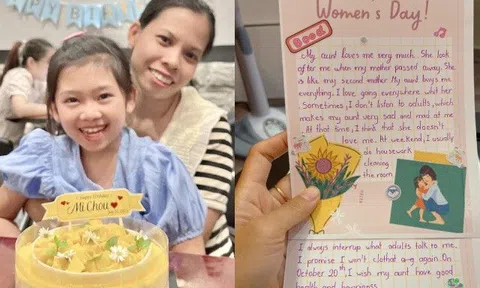 HAPPY BI
Happy Birthday
Mi Chou
Women's Day!
Good
My aunt loves me very much. She look
after me when my mother passed away. She
is like my second mother. My aunt buys me
everything. I love going everywhere whit her.
Sometimes, I don't listen to adults, which
makes my aunt very sad and mad at me
At that time, I think that she doesn't
love me. At weekend, I usually
do housework
cleaning
the room
I always interrup what adults talk to me.
I promise I won't clothat a-g again. On
October 20th, I wish my aunt have good
health and happiness